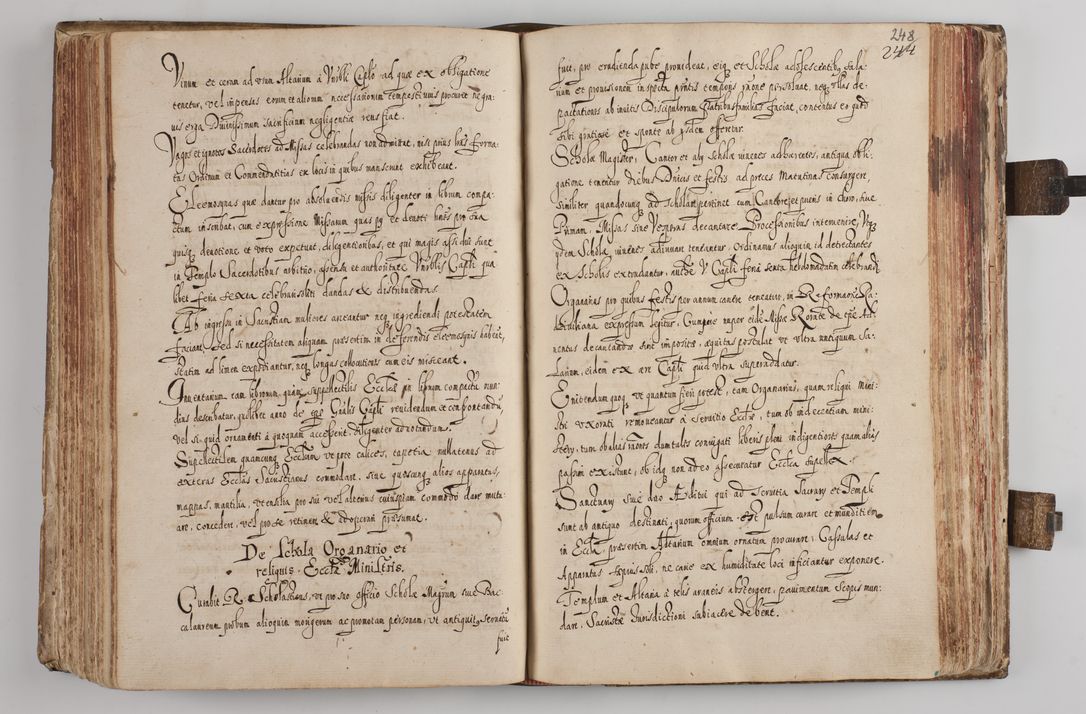 Vinum et ceram ad usum Altarium a Vnrbli Caplo ad quæ ex obligatione
tenetur, vel impensas eorum et aliorum necessariorum tempestivius procuret ne gra:
uis erga Diuinissimum sacrificium negligentiæ reus fiat.
Vagos et ignotos Sacerdotes ad Missas celebrandas non admittat, nisi prius lras forma:
tas Ordinum et Commendatitias ex locis in quibus manserunt exhibeant.
Eleemosynas quæ dantur pro absoluendis missis diligenter in librum compa:
ctum inscribat, cum expressione Missarum quas pij et deuoti hoies pro sua
quisq deuotione et voto expetunt, diligentioribus, et qui magis assidui sunt
in Templo Sacerdotibus arbitrio, assensu et authoritate Vnrblis Capli qua
libet feria sexta celebrari soliti dandas & distribuendas.
Ab ingressu in Sacristiam mulieres arceantur neq ingrediendi potestatem
faciant, sed si necessitatem aliquam præsertim in deferendis eleemosynis habeant,
statim ad limen expediantur, neq longas collocutiones cum eis misceant.
Inuentarium tam librorum, quam suppellectilis Ecclæ in librum compactum mun:
dius describatur, quolibet anno de Gnalis Capli reuidendum et componendum
vel si quid ornamenti a quoquam accesserit diligenter adnotandum.
Suppellectilem quamcunq Ecclesiæ vt pote calices, tapetia nullatenus ad
exteras Ecclesias Sacristianus commodare, siue quoscunq alios apparatus,
mappas, mantilia, vtensilia pro sui vel alterius cuiuspiam commodo dare mutu:
are, concedere, vel pro se retinere & ad operari præsumat.
De Schola Organario et
reliquis Ecclæ Ministris.
Cumbit R. Scholasticus, vt pro suo officio Scholæ Magrum siue Bac:
calaureum probum alioquin morigerum ac promotam personam, vt antiquit seruatum
fuit
248
244
fuit, pro erudienda pube prouideat, eiq et Scholæ adolescentibus sala:
rium et prouisionem inspecta pntis temporis raone persoluat, neq vllas de:
pactationes ab inuitis Discipulorum Patribusfamilias faciat, contentus eo quod
sibi gratiose et sponte ab ijsdem offeretur.
Scholæ Magister, Cantor et alij scholæ iuuenes adhærentes, antiqua obli:
gatione tenentur diebus Dnicis et festis ad preces Matutinas consurgere,
similiter quandocunq ad Scholam pertinet cum Cantore et pueris in choro, siue
Primam, Missas siue Vesperas decantare Processionibus interuenire, Vtq
ijdem Scholæ iuuenes adiuuare teneantur, Ordinamus alioquin id detrectantes
ex scholis extrudantur, iudicio V Capli feria sexta hebdomadatim celebrandi
Organarius pro quibus festis per annum canere teneatur, in Reformaone Ra:
dziuiliana expressum legitur, Cumq nuper eidem Missæ Roratæ de tpre Ad:
uentus decantandæ sint impositæ, æquitas postulat vt vltra antiquum Sa:
larium, eidem ex ære Capli quid vltra superaddatur.
Enitendum quoq vt quantum fieri potest, tam Organarius, quam reliqui mini:
stri vxorati remoueantur a seruitio Ecclæ, tum ob indecentiam mini:
sterij, tum ob alias raones dum tales coniugati liberis pleni indigentiores quam alij
passim existunt, ob idq non adeo assecuratur Ecclæ supellex.
Sanctuarij siue duo Æditui qui ad seruitia Sacrarij et Templi
sunt ab antiquo destinati, quorum officium est pulsum curare et munditiem
in Eccla præsertim Altarium omnium ornatum procurare, Casulas et
Apparatus sæpius soli, ne carie ex humiditate loci inficiantur exponere.
Templum et Altaria a telis araneis abstergere, pauimentum scopis mun:
dare, Sacristæ Iurisdictioni subiacere debent.